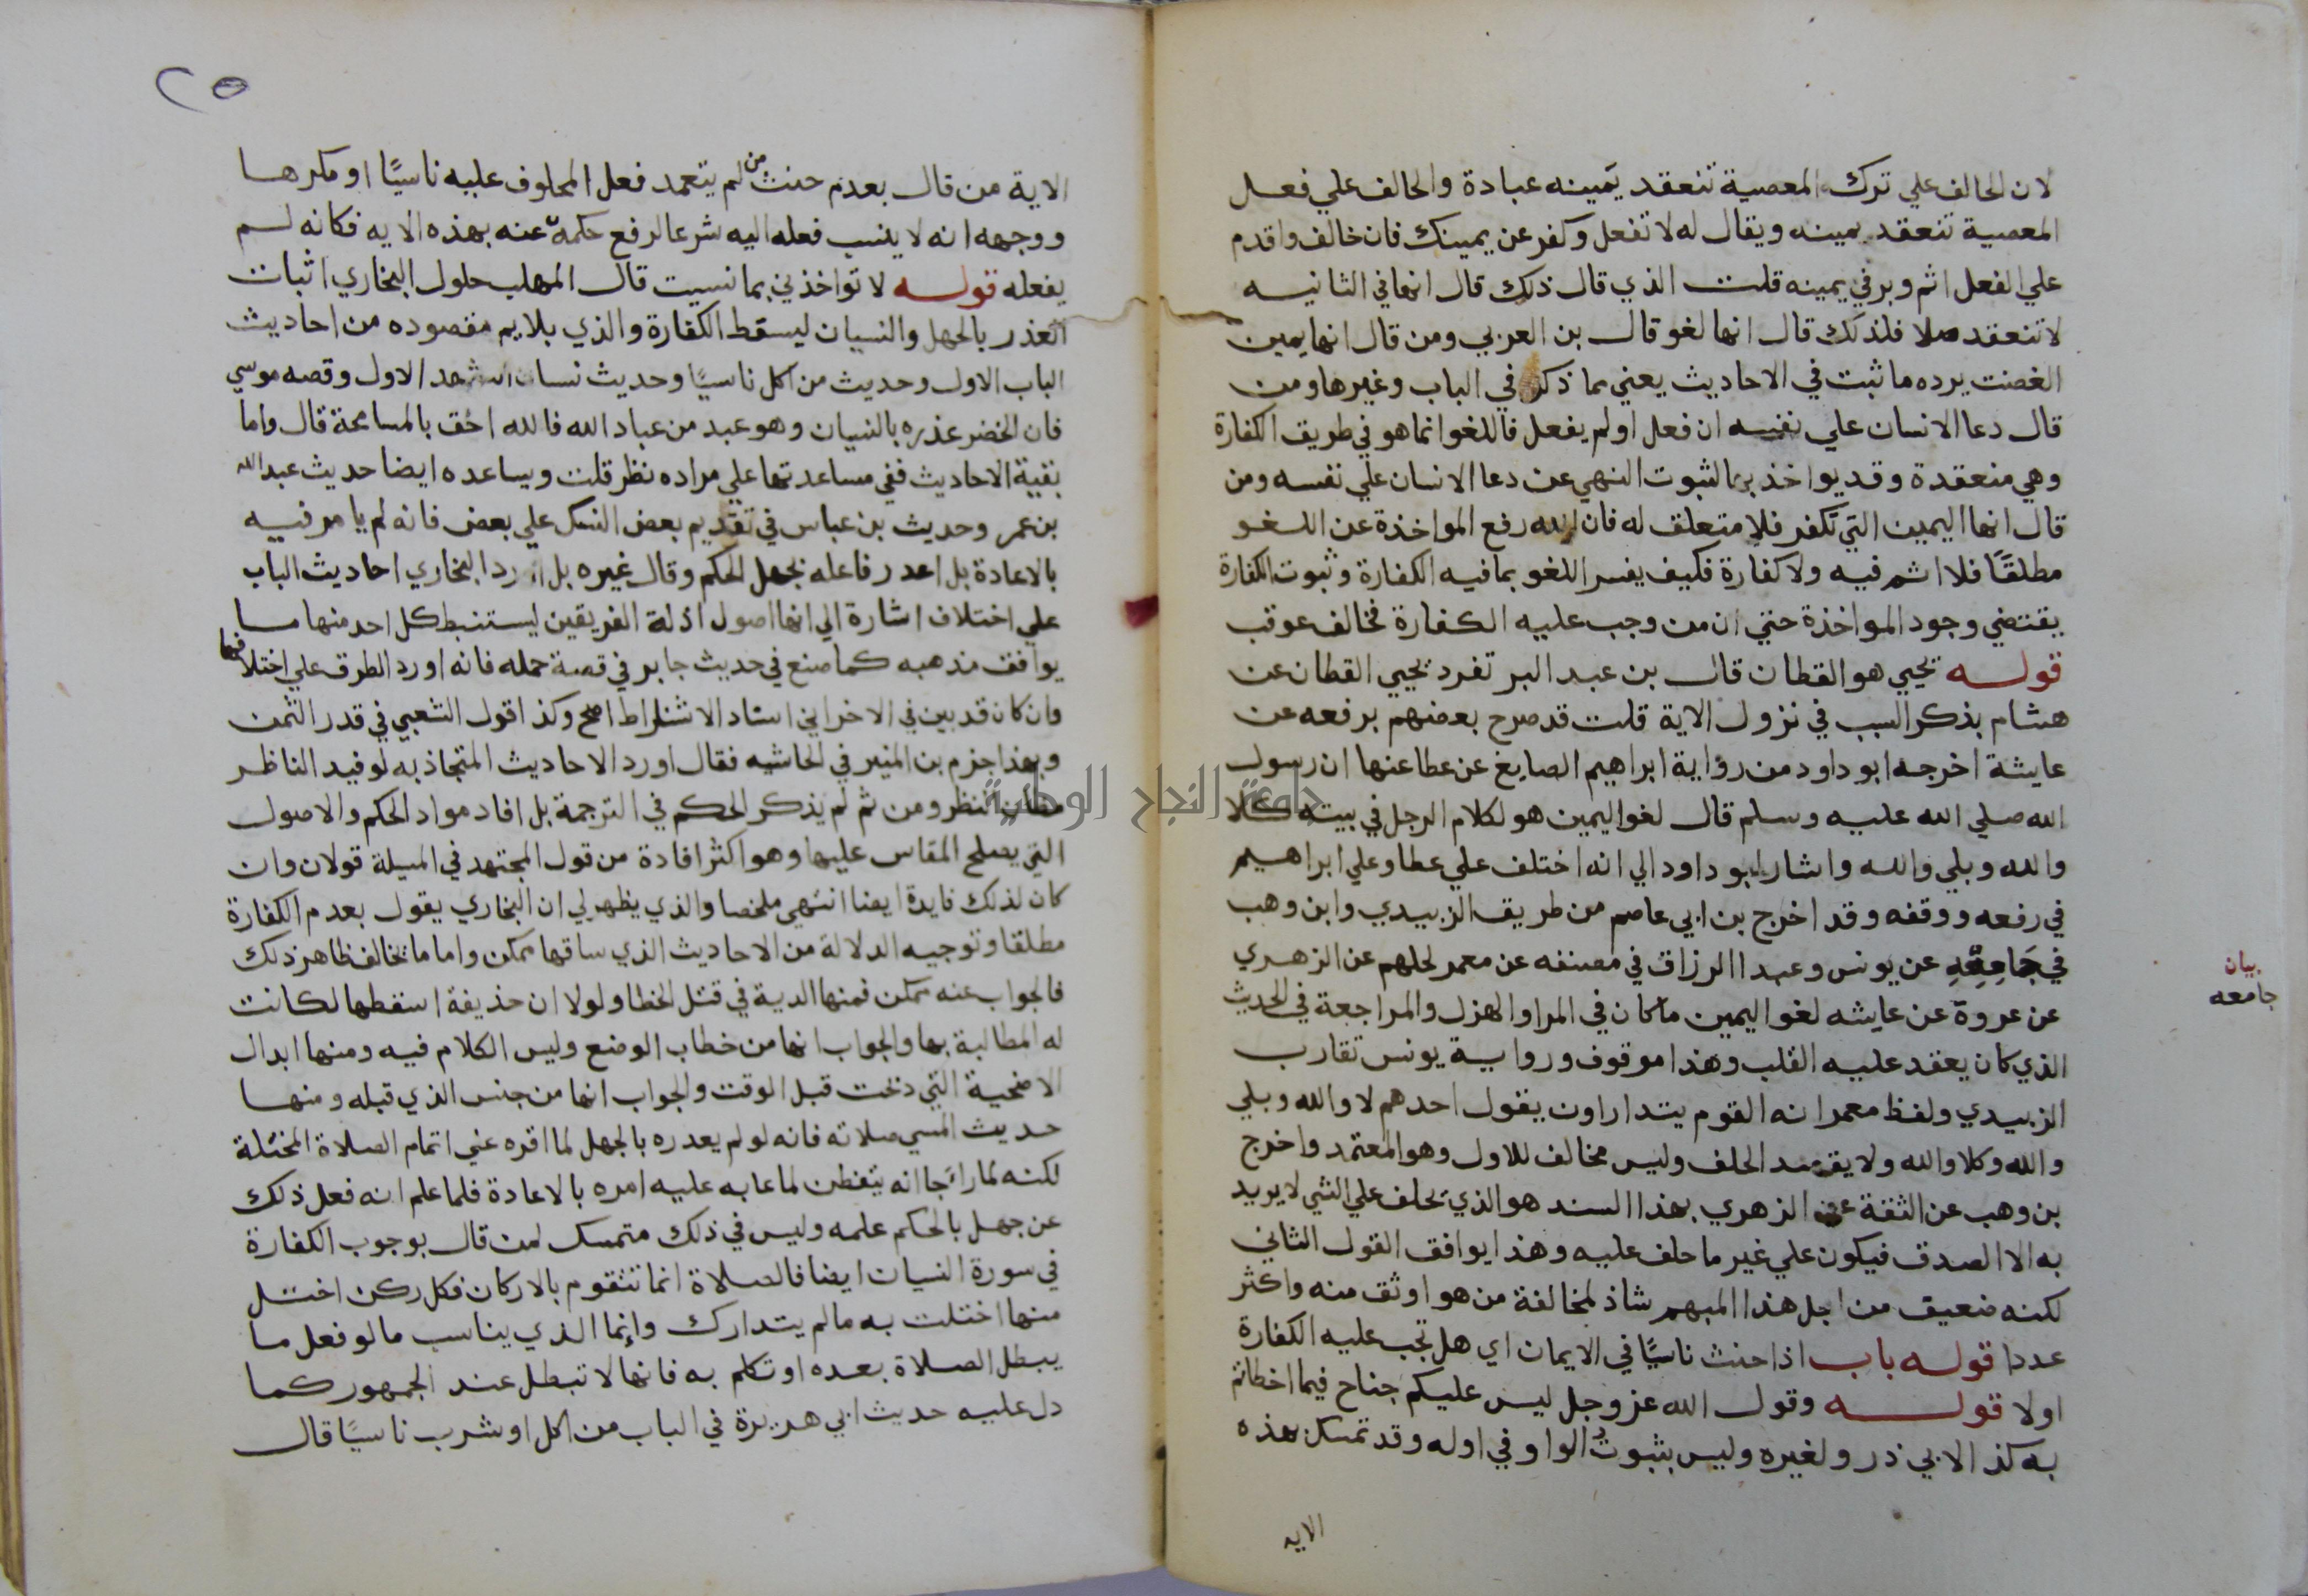 لان الحالف علي ترك المعصية تنعقد يمينه عبادة والحالف علي فعل
المعصية تنعقد يمينه ويقال له لا تفعل وكفر عن يمينك فان خالف واقدم
علي الفعل اثم وبر في يمينه قلت الذي قال ذلك قال انها في الثانيه
لا تنعقد صلا فلذلك قال انها لغو قال بن العربي ومن قال انها يمين
الغضب يرده ما ثبت في الاحاديث يعني مما ذكر في الباب وغيرها ومن
قال دعا الانسان علي نفسه ان فعل او لم يفعل فاللغو انما هو في طريق الكفارة
وهي منعقدة وقد يواخذ بها لثبوت النهي عن دعا الانسان علي نفسه ومن
قال انها اليمين التي تكفر فلا متعلق له فان الله رفع المواخذة عن اللغو
مطلقا فلا اثم فيه ولا كفارة فكيف يفسر اللغو بما فيه الكفارة وثبوت الكفارة
يقتضي وجود المواخذة حتي ان من وجب عليه الكفارة فخالف عوقب
قوله يحيي هو القطان قال بن عبد البر تفرد يحيي القطان عن
هشام بذكر السبب في نزول الاية قلت قد صرح بعضهم برفعه عن
عايشة اخرجه ابو داود من رواية ابراهيم الصايغ عن عطا عنها ان رسول
الله صلي الله عليه وسلم قال لغو اليمين هو لكلام الرجل في بيته كلا
والله وبلي والله واشار ابو داود الي انه اختلف علي عطا وعلي ابراهيم
في رفعه ووقفه وقد اخرج بن ابي عاصم من طريق الزبيدي وابن وهب
في جامعه عن يونس وعبد الرزاق في مصنفه عن معمر لحلهم عن الزهري
عن عروة عن عايشه لغو اليمين ما كان في المرا والهزل والمراجعة في الحديث
الذي كان يعقد عليه القلب وهذا موقوف ورواية يونس تقارب
الزبيدي ولفظ معمر انه القوم يتداراون يقول احدهم لا والله وبلي
والله وكلا والله ولا يقصد الحلف وليس مخالف للاول وهو المعتمد واخرج
بن وهب عن الثقة عن الزهري بهذا السند هو الذي يحلف علي الشي لا يريد
به الا الصدق فيكون علي غير ما حلف عليه وهذا يوافق القول الثاني
لكنه ضعيف من اجل هذا المبهم شاذ لمخالفة من هو اوثق منه واكثر
عددا قوله باب اذا حنث ناسيا في الايمان اي هل تجب عليه الكفارة
اولا قوله وقول الله عز وجل ليس عليكم جناح فيما اخطاتم
به كذا لابي ذر ولغيره وليس بثبوت الواو في اوله وقد تمسك بهذه
الايه
بيان
جامعه
٢٥
الاية من قال بعدم حنث من لم يتعمد فعل المحلوف عليه ناسيا او مكرها
ووجهه انه لا ينسب فعله اليه شرعا لرفع حكمه عنه بهذه الايه فكانه لم
يفعله قوله لا تواخذني بما نسيت قال المهلب حلول البخاري اثبات
العذر بالجهل والنسيان ليسقط الكفارة والذي يلايم مقصوده من احاديث
الباب الاول وحديث من اكل ناسيا وحديث نسيان التشهد الاول وقصه موسي
فان الخضر عذره بالنسيان وهو عبد من عباد الله فالله احق بالمسامحة قال واما
بقية الاحاديث ففي مساعدتها علي مراده نظر قلت ويساعده ايضا حديث عبد الله
بن عمر وحديث بن عباس في تقديم بعض النسك علي بعض فانه لم يامر فيه
بالاعادة بل اعدر فاعله بجهل الحكم وقال غيره بل اورد البخاري احاديث الباب
علي اختلاف اشارة الي انها اصول ادلة الفريقين ليستنبط كل احد منها ما
يوافق مذهبه كما صنع في حديث جابر في قصة جمله فانه اورد الطرق علي اختلافها
وان كان قد بين في الاخر ان اسناد الاشتراط اصح وكذا قول الشعبي في قدر الثمن
وبهذا جزم بن المنير في الحاشيه فقال اورد الاحاديث المتجاذبه لوفيد الناظر
مظان النظر ومن ثم لم يذكر الحكم في الترجمة بل افاد مواد الحكم والاصول
التي يصلح المقاس عليها وهو اكثر افادة من قول المجتهد في المسيلة قولان وان
كان لذلك فايدة ايضا انتهي ملخصا والذي يظهر لي ان البخاري يقول بعدم الكفارة
مطلقا وتوجيه الدلالة من الاحاديث الذي ساقها ممكن واما ما يخالف ظاهر ذلك
فالجواب عنه ممكن فمنها الدية في قتل الخطا ولولا ان حذيفة اسقطها لكانت
له المطالبة بها والجواب انها من خطاب الوضع وليس الكلام فيه ومنها ابدال
الاضحية التي دبحت قبل الوقت والجواب انها من جنس الذي قبله ومنها
حديث المسي صلاته فانه لو لم يعدره بالجهل لما اقره علي اتمام الصلاة المختلة
لكنه لما راجا انه يتفطن لما عابه عليه امره بالاعادة فلما علم انه فعل ذلك
عن جهل بالحكم علمه وليس في ذلك متمسك لمن قال بوجوب الكفارة
في سورة النسيان ايضا فالصلاة انما تتقوم بالاركان فكل ركن اختل
منها اختلت به ما لم يتدارك وانما الذي يناسب ما لو فعل ما
يبطل الصلاة بعده او تكلم به فانها لا تبطل عند الجمهور كما
دل عليه حديث ابي هريرة في الباب من اكل او شرب ناسيا قال
جامعة النجاح الوطنية